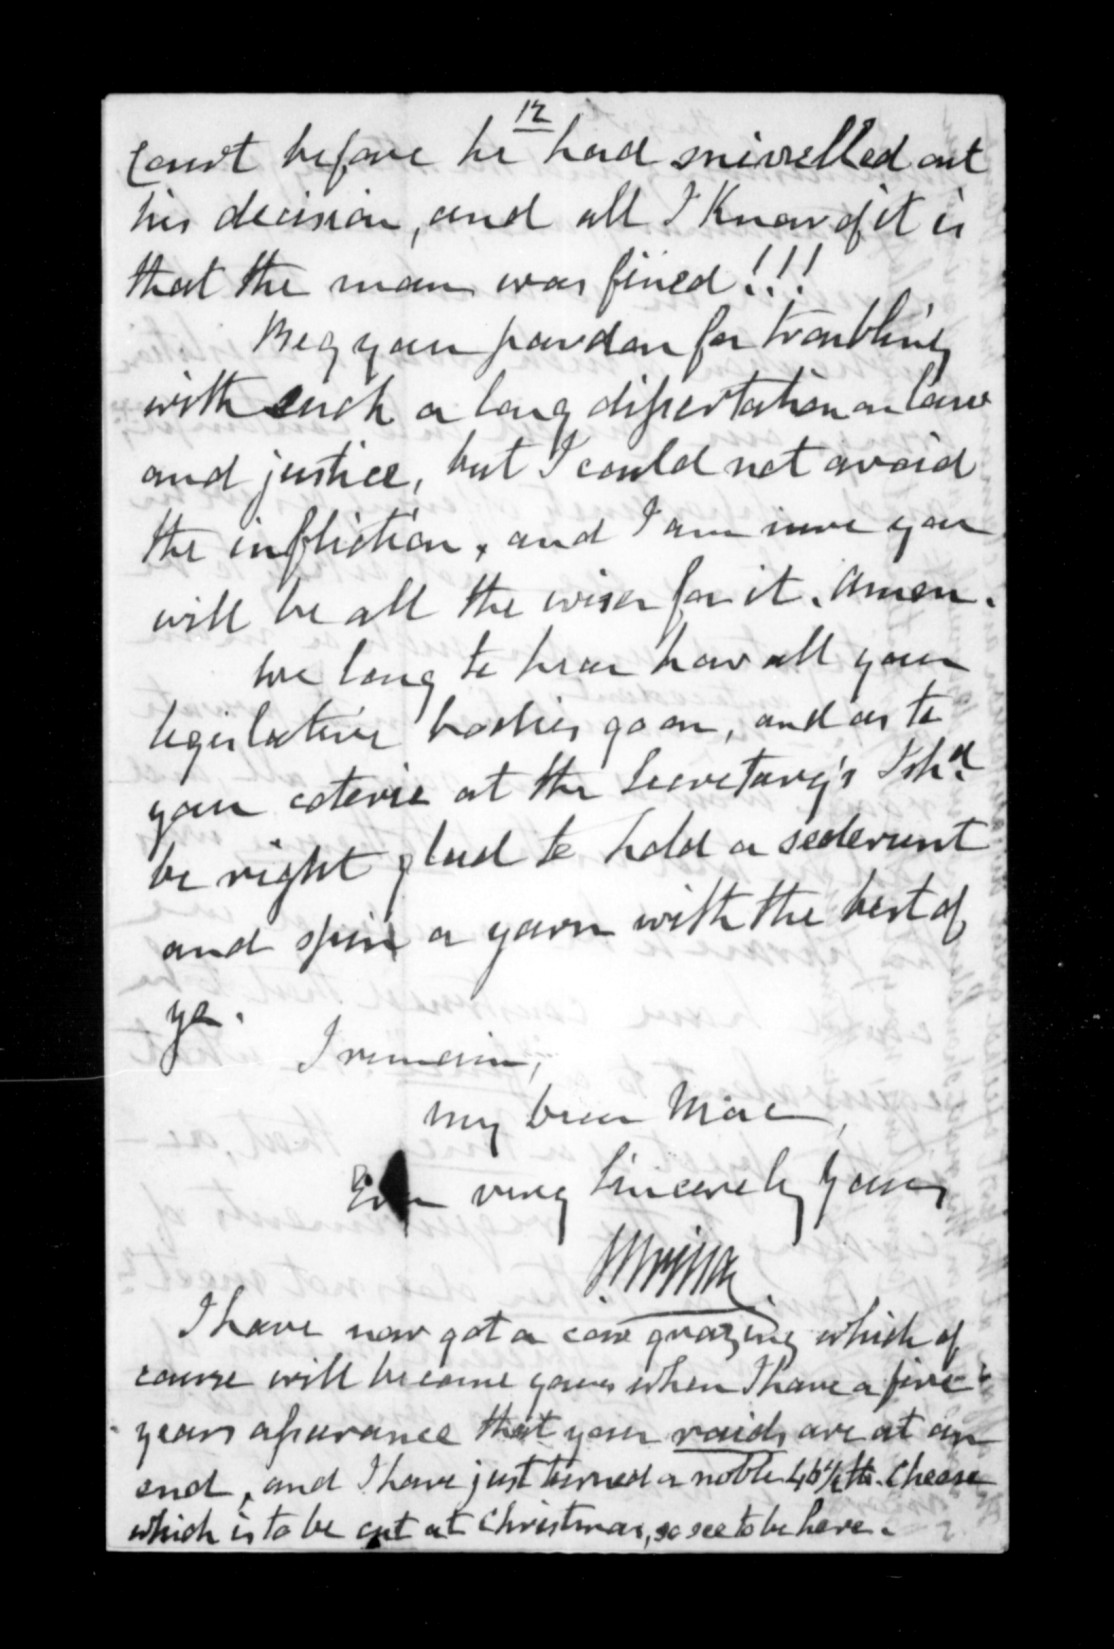 12
Court before he had snivelled out
his decision, and all I know of it is
that the man was fined!!!
Beg your pardon for troubling
with such a long dissertation on law
and justice, but I could not avoid
the infliction, and I am sure you
will be all the wiser for it. Amen.
We long to hear how all your
legislative bodies go on, and as to
your coterie at the Secretary's I shd
be right glad to hold a sederunt
and spin a yarn with the best of
ye.
I remain,
My Dear Mac,
Ever very Sincerely Yours
I have now got a cow grazing which of
course will become yours when I have a five
years assurance that your raids are at an
end, and I have just turned a noble 46½ lb. Cheese
which is to be cut at Christmas, so see to be here.